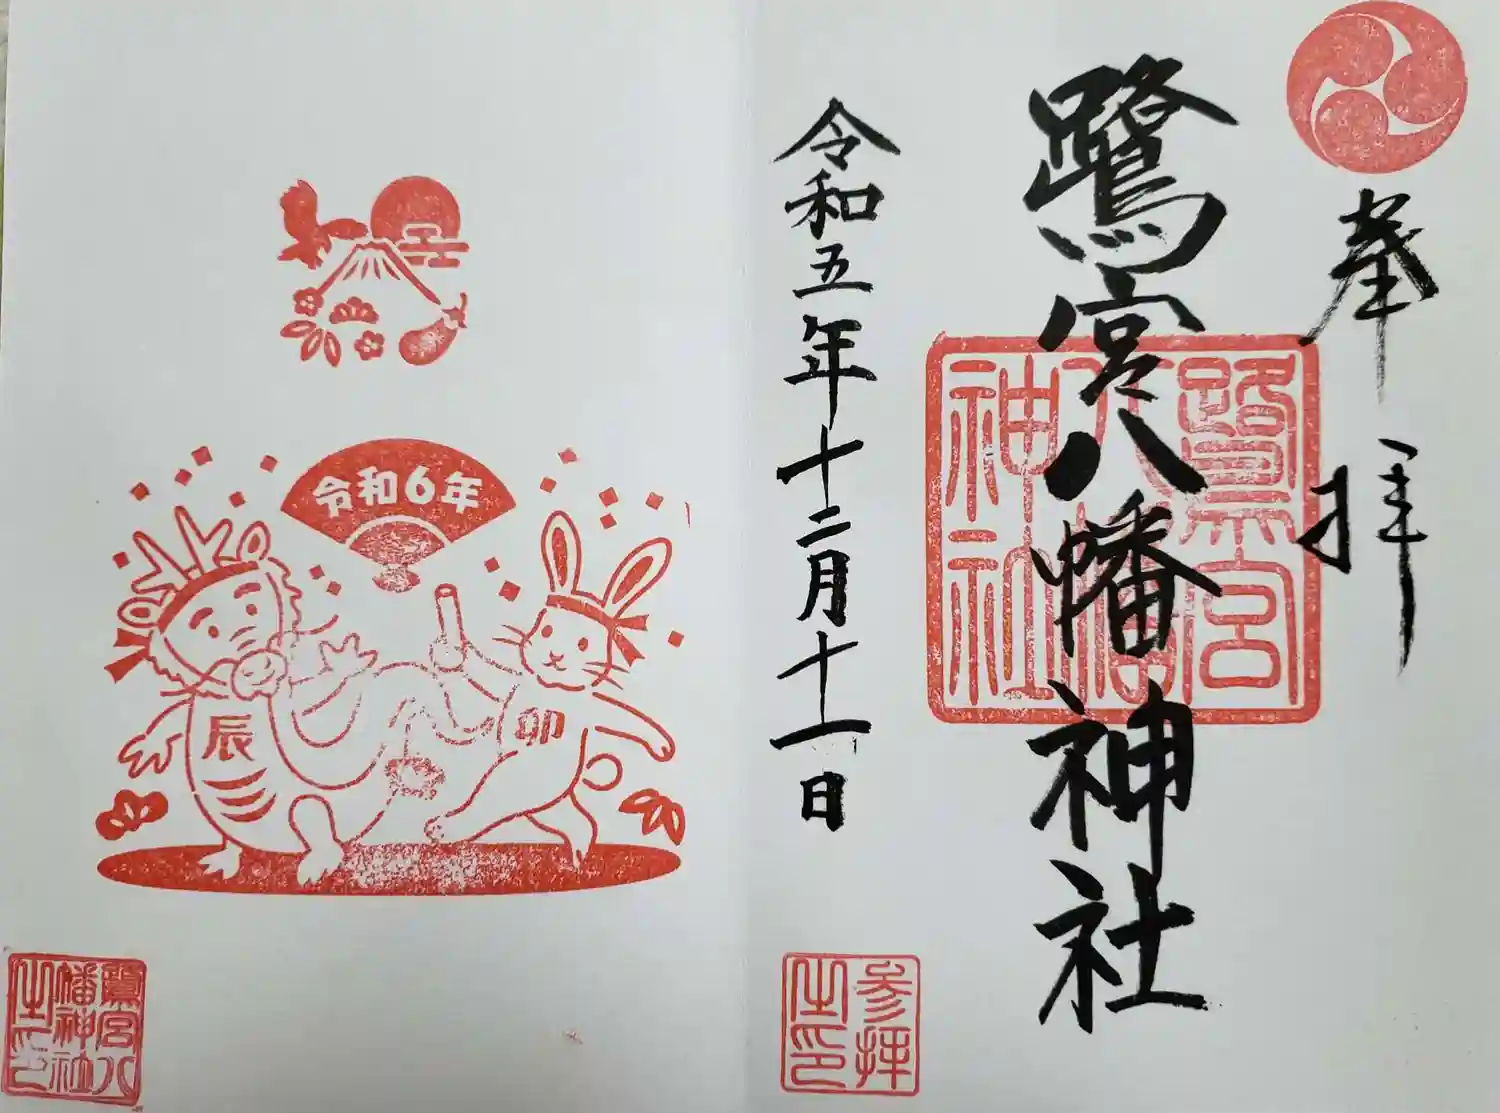 奉拝
鷺宮八幡神社
鷺宮
八幡
神社
令和五年十二月十一日
参拝
之印
令和6年
辰
卯
鷺宮八
幡神社
之印